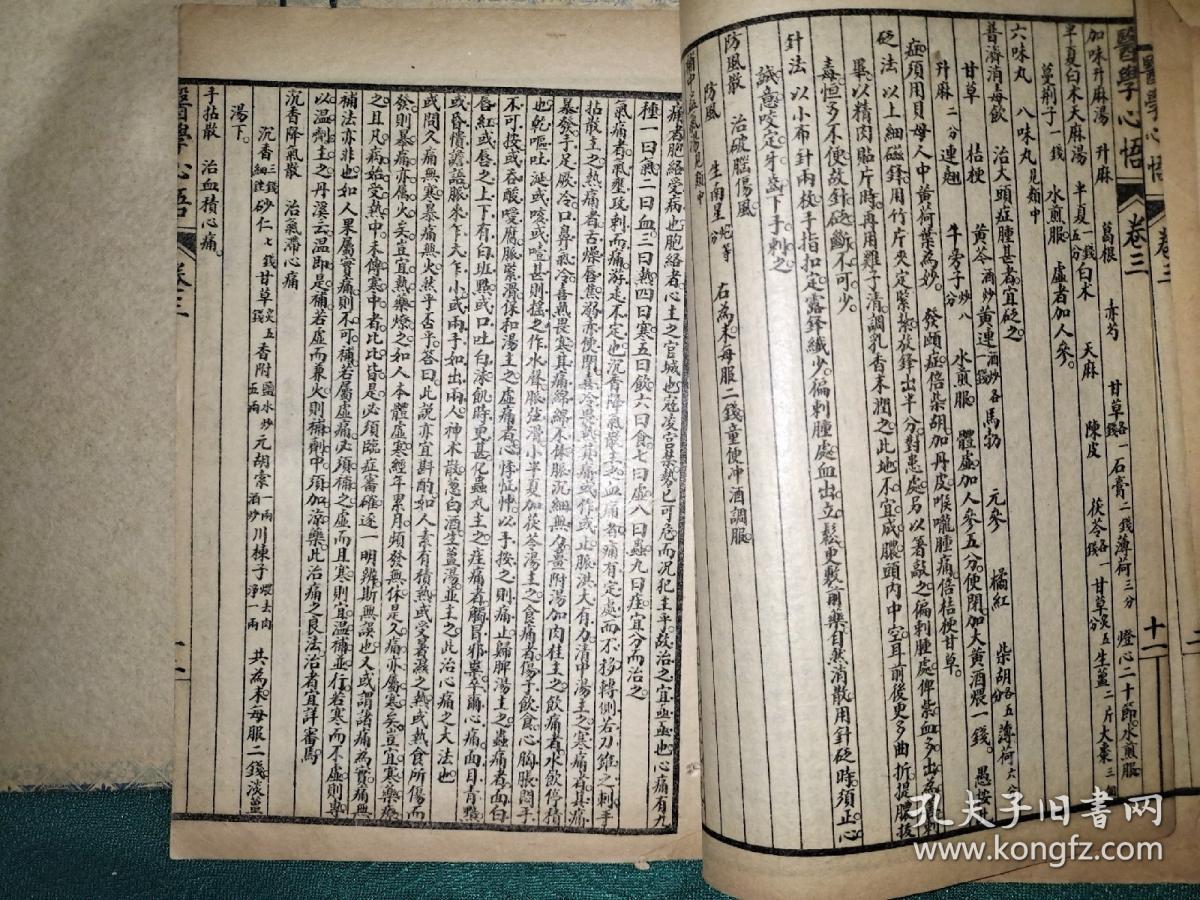 醫學心悟
卷三
十一
加味升麻湯 升麻 葛根 赤芍 甘草各一錢 石膏二錢 薄荷三分 燈心二十節。水煎服。
半夏白朮天麻湯 半夏一錢五分 白朮 天麻 陳皮 茯苓各一錢 甘草炙五分 生薑二片 大棗三個
蔓荊子一錢 水煎服。虛者加人參。
六味丸 八味丸見類中
普濟消毒飲 治大頭症腫甚者宜砭之。
甘草 桔梗 黃芩酒炒 黃連酒炒各一錢 馬勃 元參 橘紅 柴胡各五分 薄荷六分
升麻二分 連翹 牛旁子炒八分 水煎服 體虛加人參五分。便閉加大黃酒煨一錢。愚按
症須用貝母人中黃荷葉為妙。 發頤症倍柴胡加丹皮。喉嚨腫痛倍桔梗甘草。
砭法 以上細磁鋒用竹片夾定紮緊。放鋒出半分。對患處。另以箸敲之。偏刺腫處。俾紫血多出為
畢。以精肉貼片時。再用雞子清調乳香末潤之。此地不宜成膿。頭內中空。耳前後更多曲折。提膿拔
毒恒多不便。故針砭斷不可少。
針法 以小布針兩枚。手指扣定。露鋒纖少。偏刺腫處。血出立鬆。更敷前藥。自然消散。用針砭時。須正心
誠意。咬定牙齒。下手刺之
防風散 治破腦傷風
防風 生南星炮等分 右為末。每服二錢。童便冲酒調服。
補中益氣湯見類中
痛者。胞絡受病也。胞絡者。心主之宮城也。寇凌宮禁。勢已可危。而況犯主乎。故治之宜亟亟也。心痛有九
種。一曰氣。二曰血。三曰熱。四曰寒。五曰飲。六曰食。七曰虛。八曰蟲。九曰疰。宜分而治之。
氣痛者。氣壅攻刺而痛。游走不定也。沉香降氣散主之。血痛者。痛有定處而不移。轉側若刀錐之刺。手
拈散主之。熱痛者。舌燥唇焦。溺赤便閉。喜冷畏熱。其痛或作或止。脈洪大有力。清中湯主之。寒痛者。其痛
暴發。手足厥冷。口鼻氣冷。喜熱畏寒。其痛綿綿不休。脈沉細無力。薑附湯加肉桂主之。飲痛者。水飲停積
也。乾嘔吐涎。或咳或噎。甚則搖之作水聲。脈弦滑。小半夏加茯苓湯主之。食痛者。傷于飲食。心胸脹悶。手
不可按。或吞酸噯腐。脈緊滑。保和湯主之。虛痛者。心悸怔忡。以手按之則痛止。歸脾湯主之。蟲痛者。面白
唇紅。或唇之上下有白斑點。或口吐白沫。飢時更甚。化蟲丸主之。疰痛者。觸冒邪祟。卒爾心痛。面目青黯。
或昏憒譫語。脈來乍大乍小。或兩手如出兩人。神朮散。葱白酒。生薑湯。並主之。此治心痛之大法也
或問久痛無寒。暴痛無火。然乎否乎。答曰。此說亦宜斟酌。如人素有積熱。或受暑濕之熱。或熱食所傷而
發。則暴痛亦屬火矣。豈宜熱藥療之。如人本體虛寒。經年累月。頻發無休。是久痛亦屬寒矣。豈宜寒藥療
之。且凡病始受熱中。未傳寒中者。比比皆是。必須臨症審確。逐一明辨。斯無誤也。又或謂諸痛為實。痛無
補法。亦非也。如人果屬實痛。則不可補。若屬虛痛。必須補之。虛而且寒。則宜溫補並行。若寒而不虛。則專
以溫劑主之。丹溪云。溫即是補。若虛而兼火。則補劑中。須加涼藥。此治痛之良法。治者宜詳審焉
沉香降氣散 治氣滯心痛
沉香三錢細銼 砂仁七錢 甘草炙五錢 香附鹽水炒五兩 元胡索一兩酒炒 川棟子煨去肉淨一兩 共為末。每服二錢。淡薑
湯下。
手拈散 治血積心痛。
醫學心悟
卷三
十一
孔夫子旧书网
www.kongfz.com